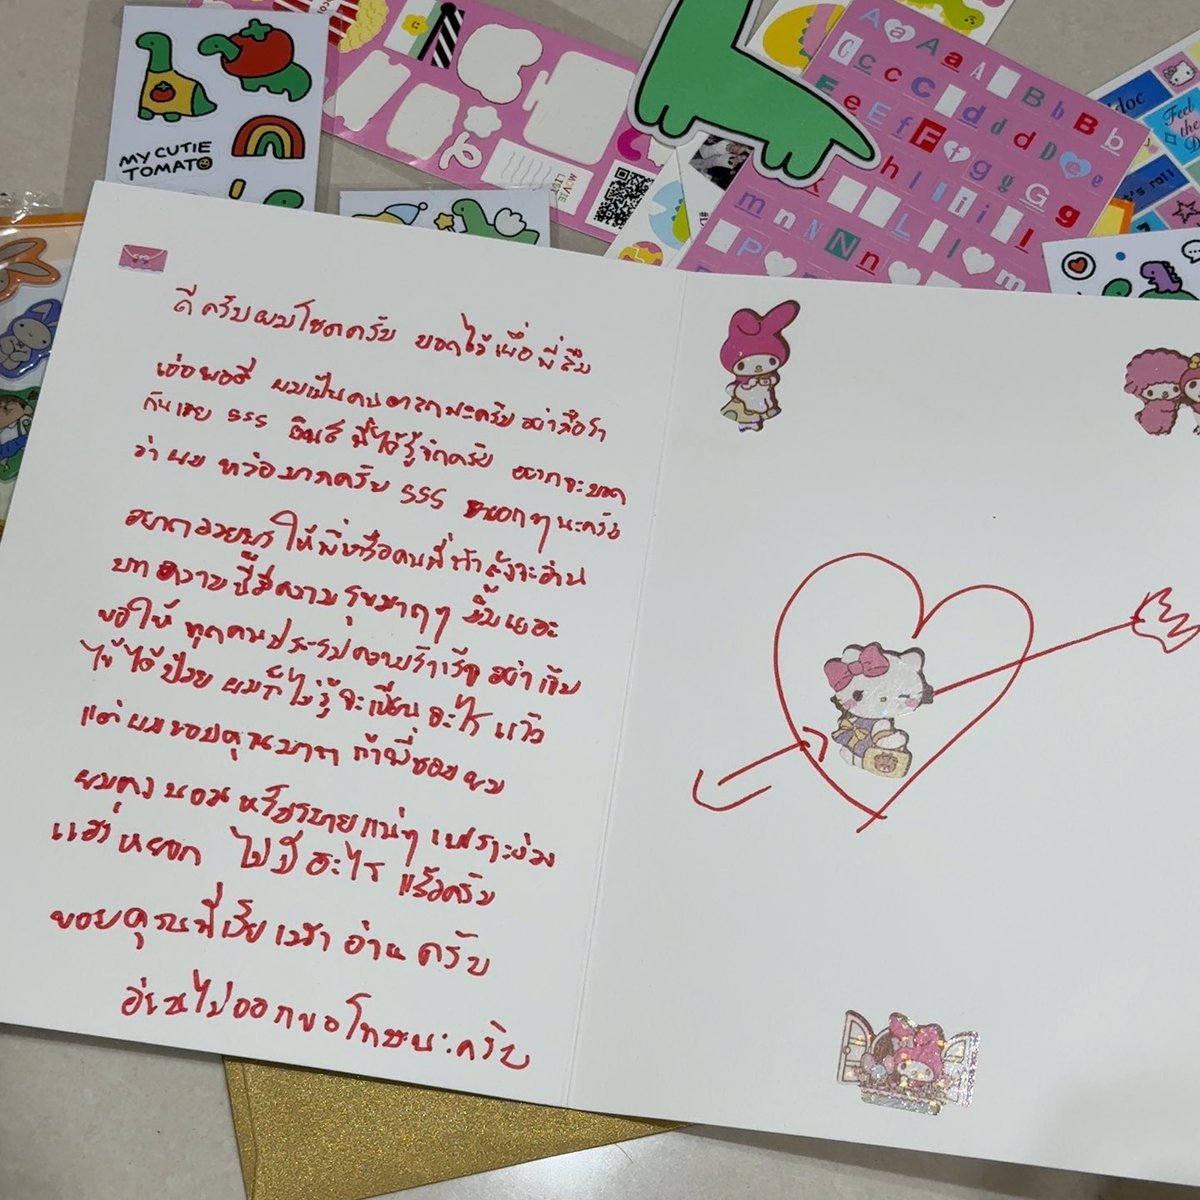 MY CUTIE
TOMATO
MOVIE
LIST
ดีครับผมโชคครับ บอกไว้เผื่อพี่ลืม
เอ่อพอดี ผมเป็นคนตลกนะครับ อย่าถือสา
กันเลย 555 ยินดีที่ได้รู้จักครับ อยากจะบอก
ว่าผม หล่อมากครับ 555 หยอกๆนะครับ
อยากอวยพรให้พี่หรือคนที่กำลังจะอ่าน
บทความนี้มีความสุขมากๆ
ขอให้ ทุกคนประสบความสำเร็จ อย่าเจ็บ
ไข้ได้ป่วย ผมก็ไม่รู้จะเขียนอะไรแล้ว
แต่ผมขอบคุณมาก ถ้าพี่ชอบผม
ผมคงนอนหลับสบายแน่ๆ เพราะง่วง
หยอก ไม่มีอะไรแล้วครับ
ขอบคุณที่เสียเวลาอ่านครับ
อ่านไม่ออกขอโทษนะครับ